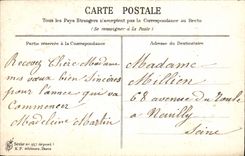 CARTE POSTALE
Tous les Pays Étrangers n'acceptent pas la Correspondance au Recto
(Se renseigner à la Poste)
Partie réservée à la Correspondance
Adresse du Destinataire
Recevez Chère Madame
mes vœux bien sincères
pour l'année qui va
Commencer
Madeleine Martin
Madame
Million
68 avenue du Roule
à Neuilly
Seine